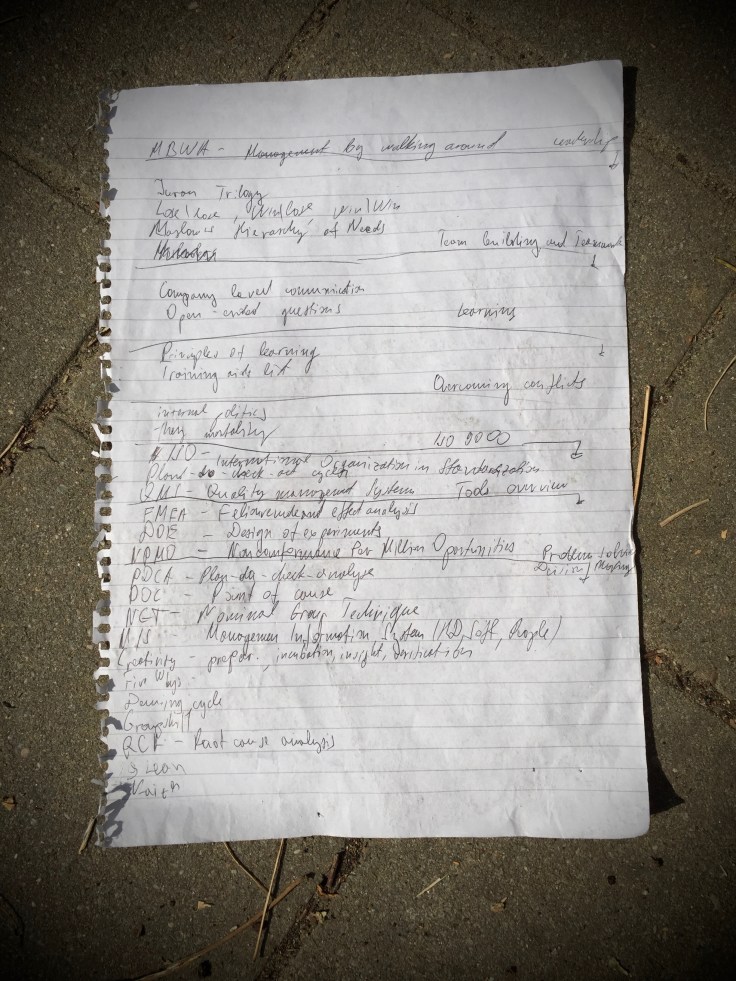 MBWA - Management by walking around Leadership
Juran Trilogy
Lose/Lose, Win/Lose Win/Win
Maslow's Hierarchy of Needs
Team building and Teamwork
Company level communication
Open-ended questions Learning
Principles of learning
Training aids list
Overcoming conflicts
internal politics
mortality
ISO 9000
ISO - International Organization in Standardization
-do-check-act cycle
QMS - Quality management System Tools overview
FMEA - effect analysis
DOE - Design of experiments
NPMO - Nonconformance Per Million Oportunities Problem solving
PDCA - Plan-do-check-analyse
POC - Point of cause
NGT - Nominal Group Technique
MIS - Management Information System (HD, Soft, People)
Creativity - prepar. incubation, insight, verification
Five Whys -
Deming cycle
RCA - Root cause analysis
Lean